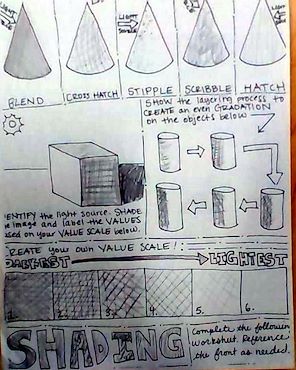 LIGHT
LIGHT
SOURCE
BLEND
CROSS HATCH
STIPPLE
SCRIBBLE
HATCH
SHOW the layering process to
CREATE an even GRADATION
on the objects below
IDENTIFY the light source. SHADE
the image and label the VALUES
based on your VALUE SCALE below.
CREATE your own VALUE SCALE!:
DARKEST
LIGHTEST
1. 2. 3. 4. 5. 6.
SHADING
Complete the following
worksheet. Reference
the front as needed.